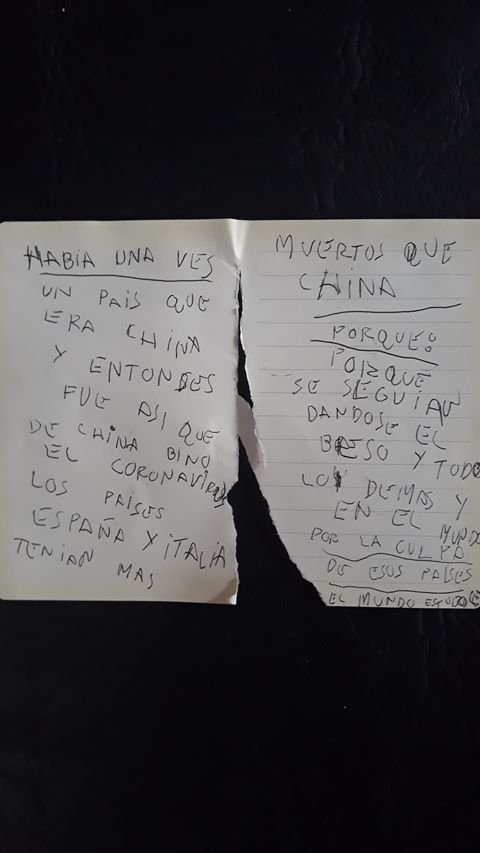 HABIA UNA VES
UN PAIS QUE
ERA CHINA
Y ENTONSES
FUE ASI QUE
DE CHINA BINO
EL CORONAVIRUS
LOS PAÍSES
ESPAÑA Y iTALIA
TENIAN MAS
MUERTOS QUE
CHINA
PORQUE?
PORQUE
SE SEGUIAN
DANDOSE EL
BESO Y TODO
LO DEMAS Y
EN EL MUNDO
POR LA CULPA
DE ESOS PAÍSES
EL MUNDO